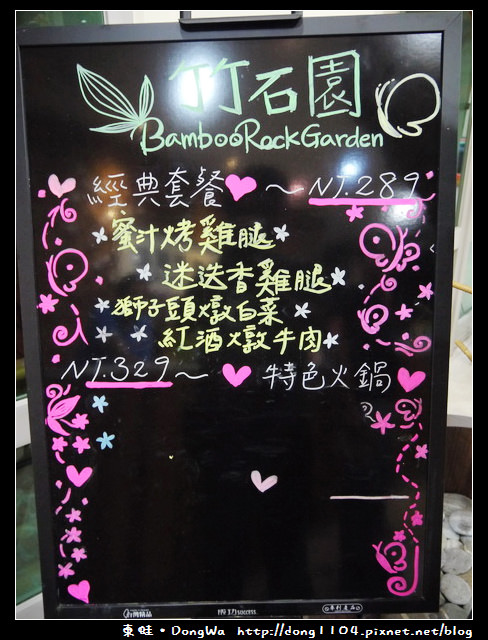 竹石園
BambooRockGarden
經典套餐 ～ NT.289
蜜汁烤雞腿
迷迭香雞腿
獅子頭燉白菜
紅酒燉牛肉
NT.329～ 特色火鍋
成功 success.
專利產品
東蛙・DongWa http://dong1104.pixnet.net/blog